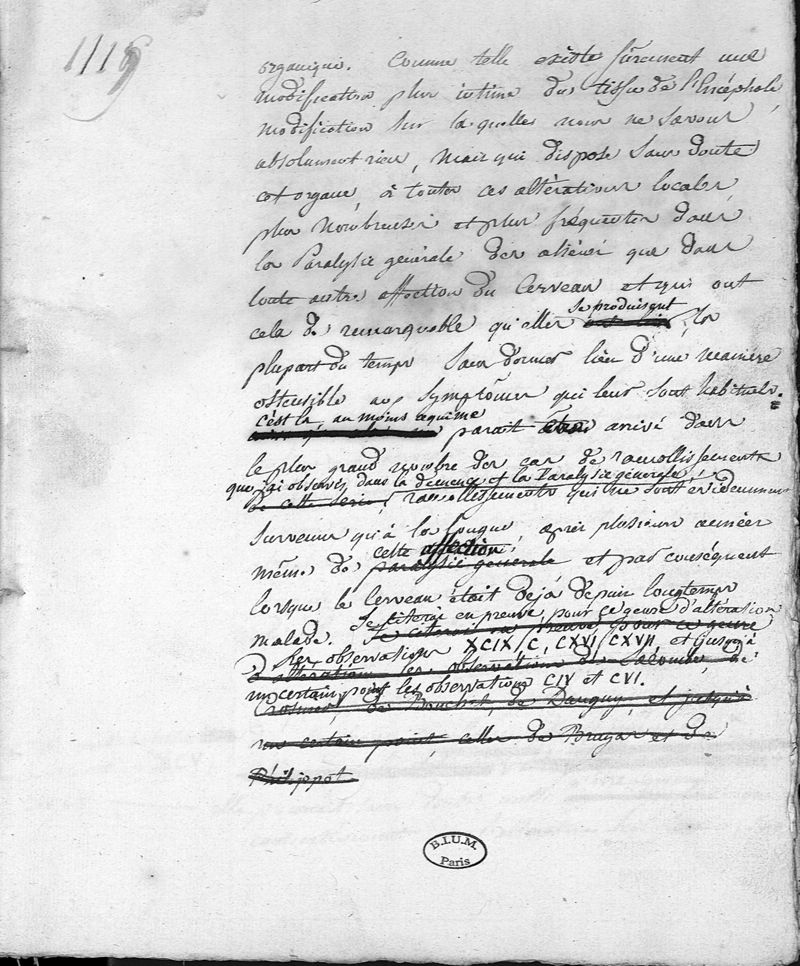 1118
organique. Comme telle existe sûrement une
modification plus intime du tissu de l'Encéphale,
modification sur laquelle nous ne savons
absolument rien, mais qui dispose sans doute
cet organe, à toutes ces altérations locales
plus nombreuses et plus fréquentes dans
la Paralysie générale des aliénés que dans
toute autre affection du Cerveau et qui ont
se produisent
cela de remarquable qu'elles la
plupart du temps sans donner lieu d'une manière
ostensible aux symptômes qui leur sont habituels.
c'est là, au moins ce qui me
parait être arrivé dans
le plus grand nombre des cas de ramollissements
que j'ai observés dans la démence et la Paralysie générale,
de cette série, ramollissements qui ne sont évidemment
survenus qu'à la longue, après plusieurs années
cette affection,
même de paralysie générale et par conséquent
lorsque le Cerveau était déjà depuis longtemps
Je citerai en preuve, pour ce genre d'altération
malade. Je citerai en preuve pour ce genre
les observations XCIX, C, CXVI, CXVII, et jusqu'à
d'altération les observations de
un certain point les observations CIV et CVI.
de Bouchet, de Dauguy, et jusqu'à
un certain point, celles de Brugas et de
Philippot.
B.I.U.M.
Paris